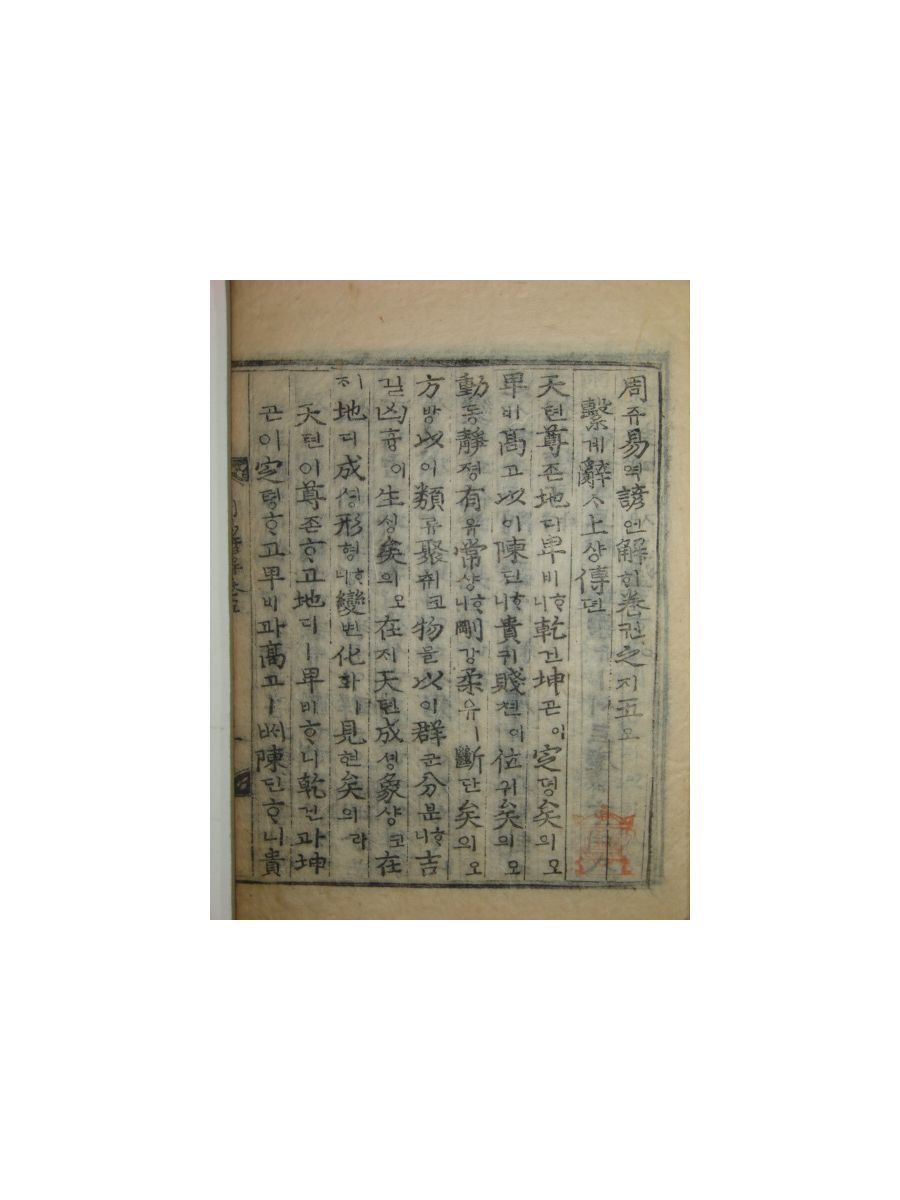 周쥬易역諺언解ᄒᆡ卷권之지五오
繫계辭ᄉ上샹傳뎐
天텬尊존地디卑비ᄒᆞ니乾건坤곤이定뎡矣의오
卑비高고以이陳딘ᄒᆞ니貴귀賤쳔이位위矣의오
動동靜졍有유常샹ᄒᆞ니剛강柔유ㅣ斷단矣의오
方방以이類류聚취코物믈以이群군分분ᄒᆞ니吉
길凶흉이生ᄉᆡᆼ矣의오在ᄌᆡ天텬成셩象샹코在
ᄌᆡ地디成셩形형ᄒᆞ니變변化화ㅣ見현矣의라
天텬이尊존ᄒᆞ고地디ㅣ卑비ᄒᆞ니乾건과坤
곤이定뎡ᄒᆞ고卑비과高고ㅣᄡᅥ陳딘ᄒᆞ니貴